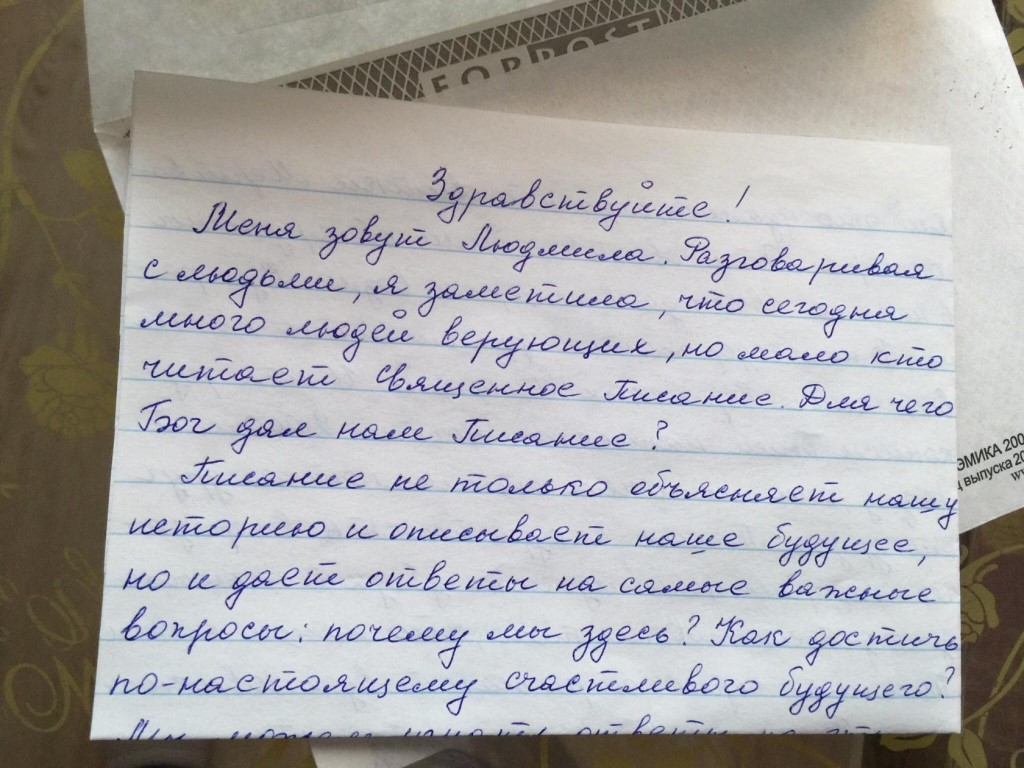 FORPOST
Здравствуйте!
Меня зовут Людмила. Разговаривая
с людьми, я заметила, что сегодня
много людей верующих, но мало кто
читает Священное Писание. Для чего
Бог дал нам Писание?
Писание не только объясняет нашу
историю и описывает наше будущее,
но и даёт ответы на самые важные
вопросы: почему мы здесь? Как достичь
по-настоящему счастливого будущего?
ответы на
ЭМИКА 200
ц выпуска 20